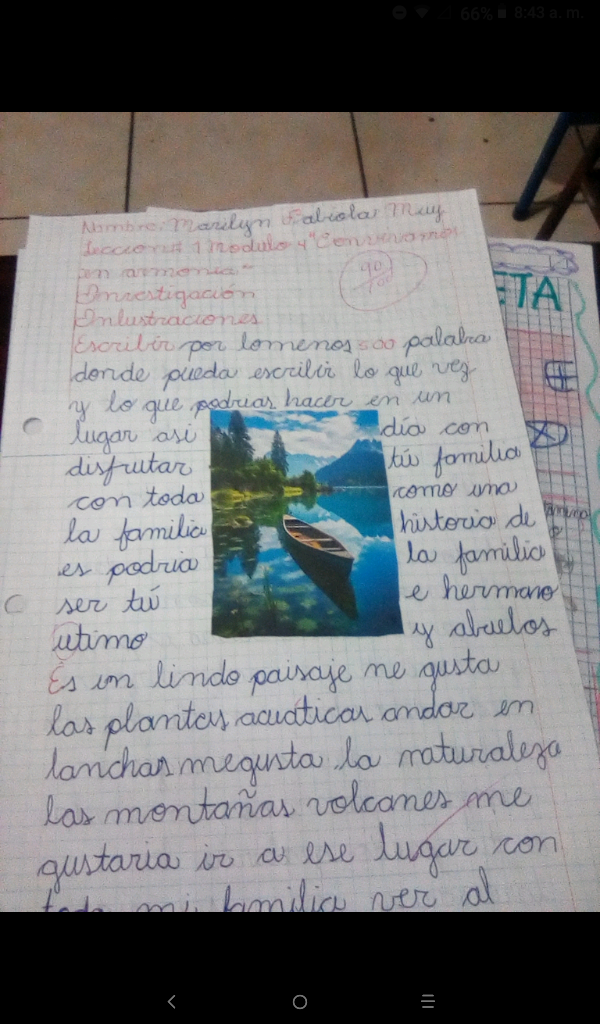 66% 8:43 a. m.
Nombre: Marilyn Fabiola Muy
Leccion: 1 Modulo 4 "Convivamos
en armonia"
Investigación
Inlustraciones
90/100
Escribir por lomenos 500 palabra
donde pueda escribir lo que vez
y lo que podrias hacer en un
lugar asi día con
disfrutar tú familia
con toda como una
la familia historia de
es podria la familia
ser tú e hermano
utimo y abuelos
Es un lindo paisaje me gusta
las plantas acuaticas andar en
lanchas megusta la naturaleza
las montañas volcanes me
gustaria ir a ese lugar con
toda mi familia ver al
ETA